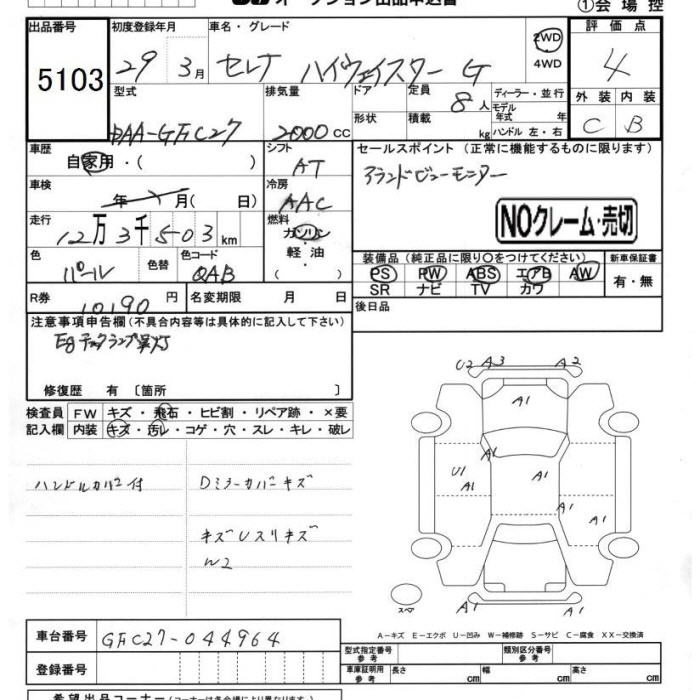 オークション出品申込書
①会場控
出品番号 5103
初度登録年月 29年3月
車名・グレード セレナ ハイウェイスター G
2WD
4WD
評価点 4
外装 C 内装 B
型式 DAA-GFC27
排気量 2000cc
ドア
形状
定員 8人
積載 kg
ディーラー・並行
モデル年式 年
ハンドル 左・右
車歴 自家用・( )
シフト AT
セールスポイント (正常に機能するものに限ります)
アラウンドビューモニター
車検 年 月( 日)
冷房 AAC
NOクレーム・売切
走行 12万3千503km
燃料 ガソリン・軽油 ( )
色 パール
色替
色コード QAB
装備品 (純正品に限り〇をつけてください)
新車保証書 有・無
PS PW ABS エアB AW
SR ナビ TV カワ
R券 10190円
名変期限 月 日
後日品
注意事項申告欄 (不具合内容等は具体的に記入して下さい)
Egチェックランプ点灯
修復歴 有 〔箇所 〕
検査員記入欄
FW キズ・飛石・ヒビ割・リペア跡・×要
内装 キズ・汚レ・コゲ・穴・スレ・キレ・破レ
ハンドルカバー付
Dミラーカバーキズ
キズUスリキズ
W2
U2 A3 A2
A1
U1 A1 A1
A1 A1
スペア
A1 A1
A-キズ E-エクボ U-凹み W-補修跡 S-サビ C-腐食 XX-交換済
車台番号 GFC27-044964
登録番号
型式指定番号 参考
類別区分番号 参考
車庫証明用 参考 長さ cm 幅 cm 高さ cm
希望出品コーナー